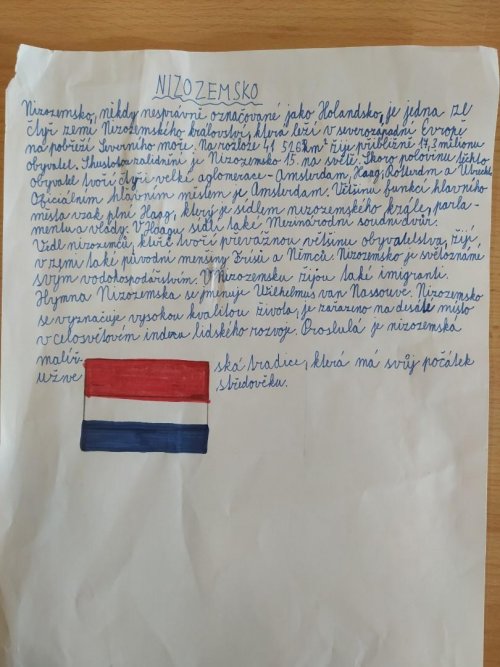 NIZOZEMSKO
Nizozemsko, někdy nesprávně označované jako Holandsko, je jedna ze
čtyř zemí Nizozemského království, která leží v severozápadní Evropě
na pobřeží Severního moře. Na rozloze 41 526km² žije přibližně 17,3 milionu
obyvatel. S hustotou zalidnění je Nizozemsko 15. na světě. Skoro polovinu těchto
obyvatel tvoří čtyři velké aglomerace - Amsterdam, Haag, Rotterdam a Utrecht.
Oficiálním hlavním městem je Amsterdam. Většinu funkcí hlavního
města však plní Haag, který je sídlem nizozemského krále, parla-
mentu a vlády. V Haagu sídlí také Mezinárodní soudní dvůr.
Vedle nizozemců, kteře tvoří převážnou většinu obyvatelstva, žijí
v zemi také původní menšiny Frísů a Němců. Nizozemsko je světoznámé
svým vodohospodářstvím. V Nizozemsku žijou také imigranti.
Hymna Nizozemska se jmenuje Wilhelmus van Nassouwe. Nizozemsko
se vyznačuje vysokou kvalitou života, je zařazeno na desáté místo
v celosvětovém indexu lidského rozvoje. Proslulá je nizozemská
malíř ská tradice, která má svůj počátek
už ve středověku.